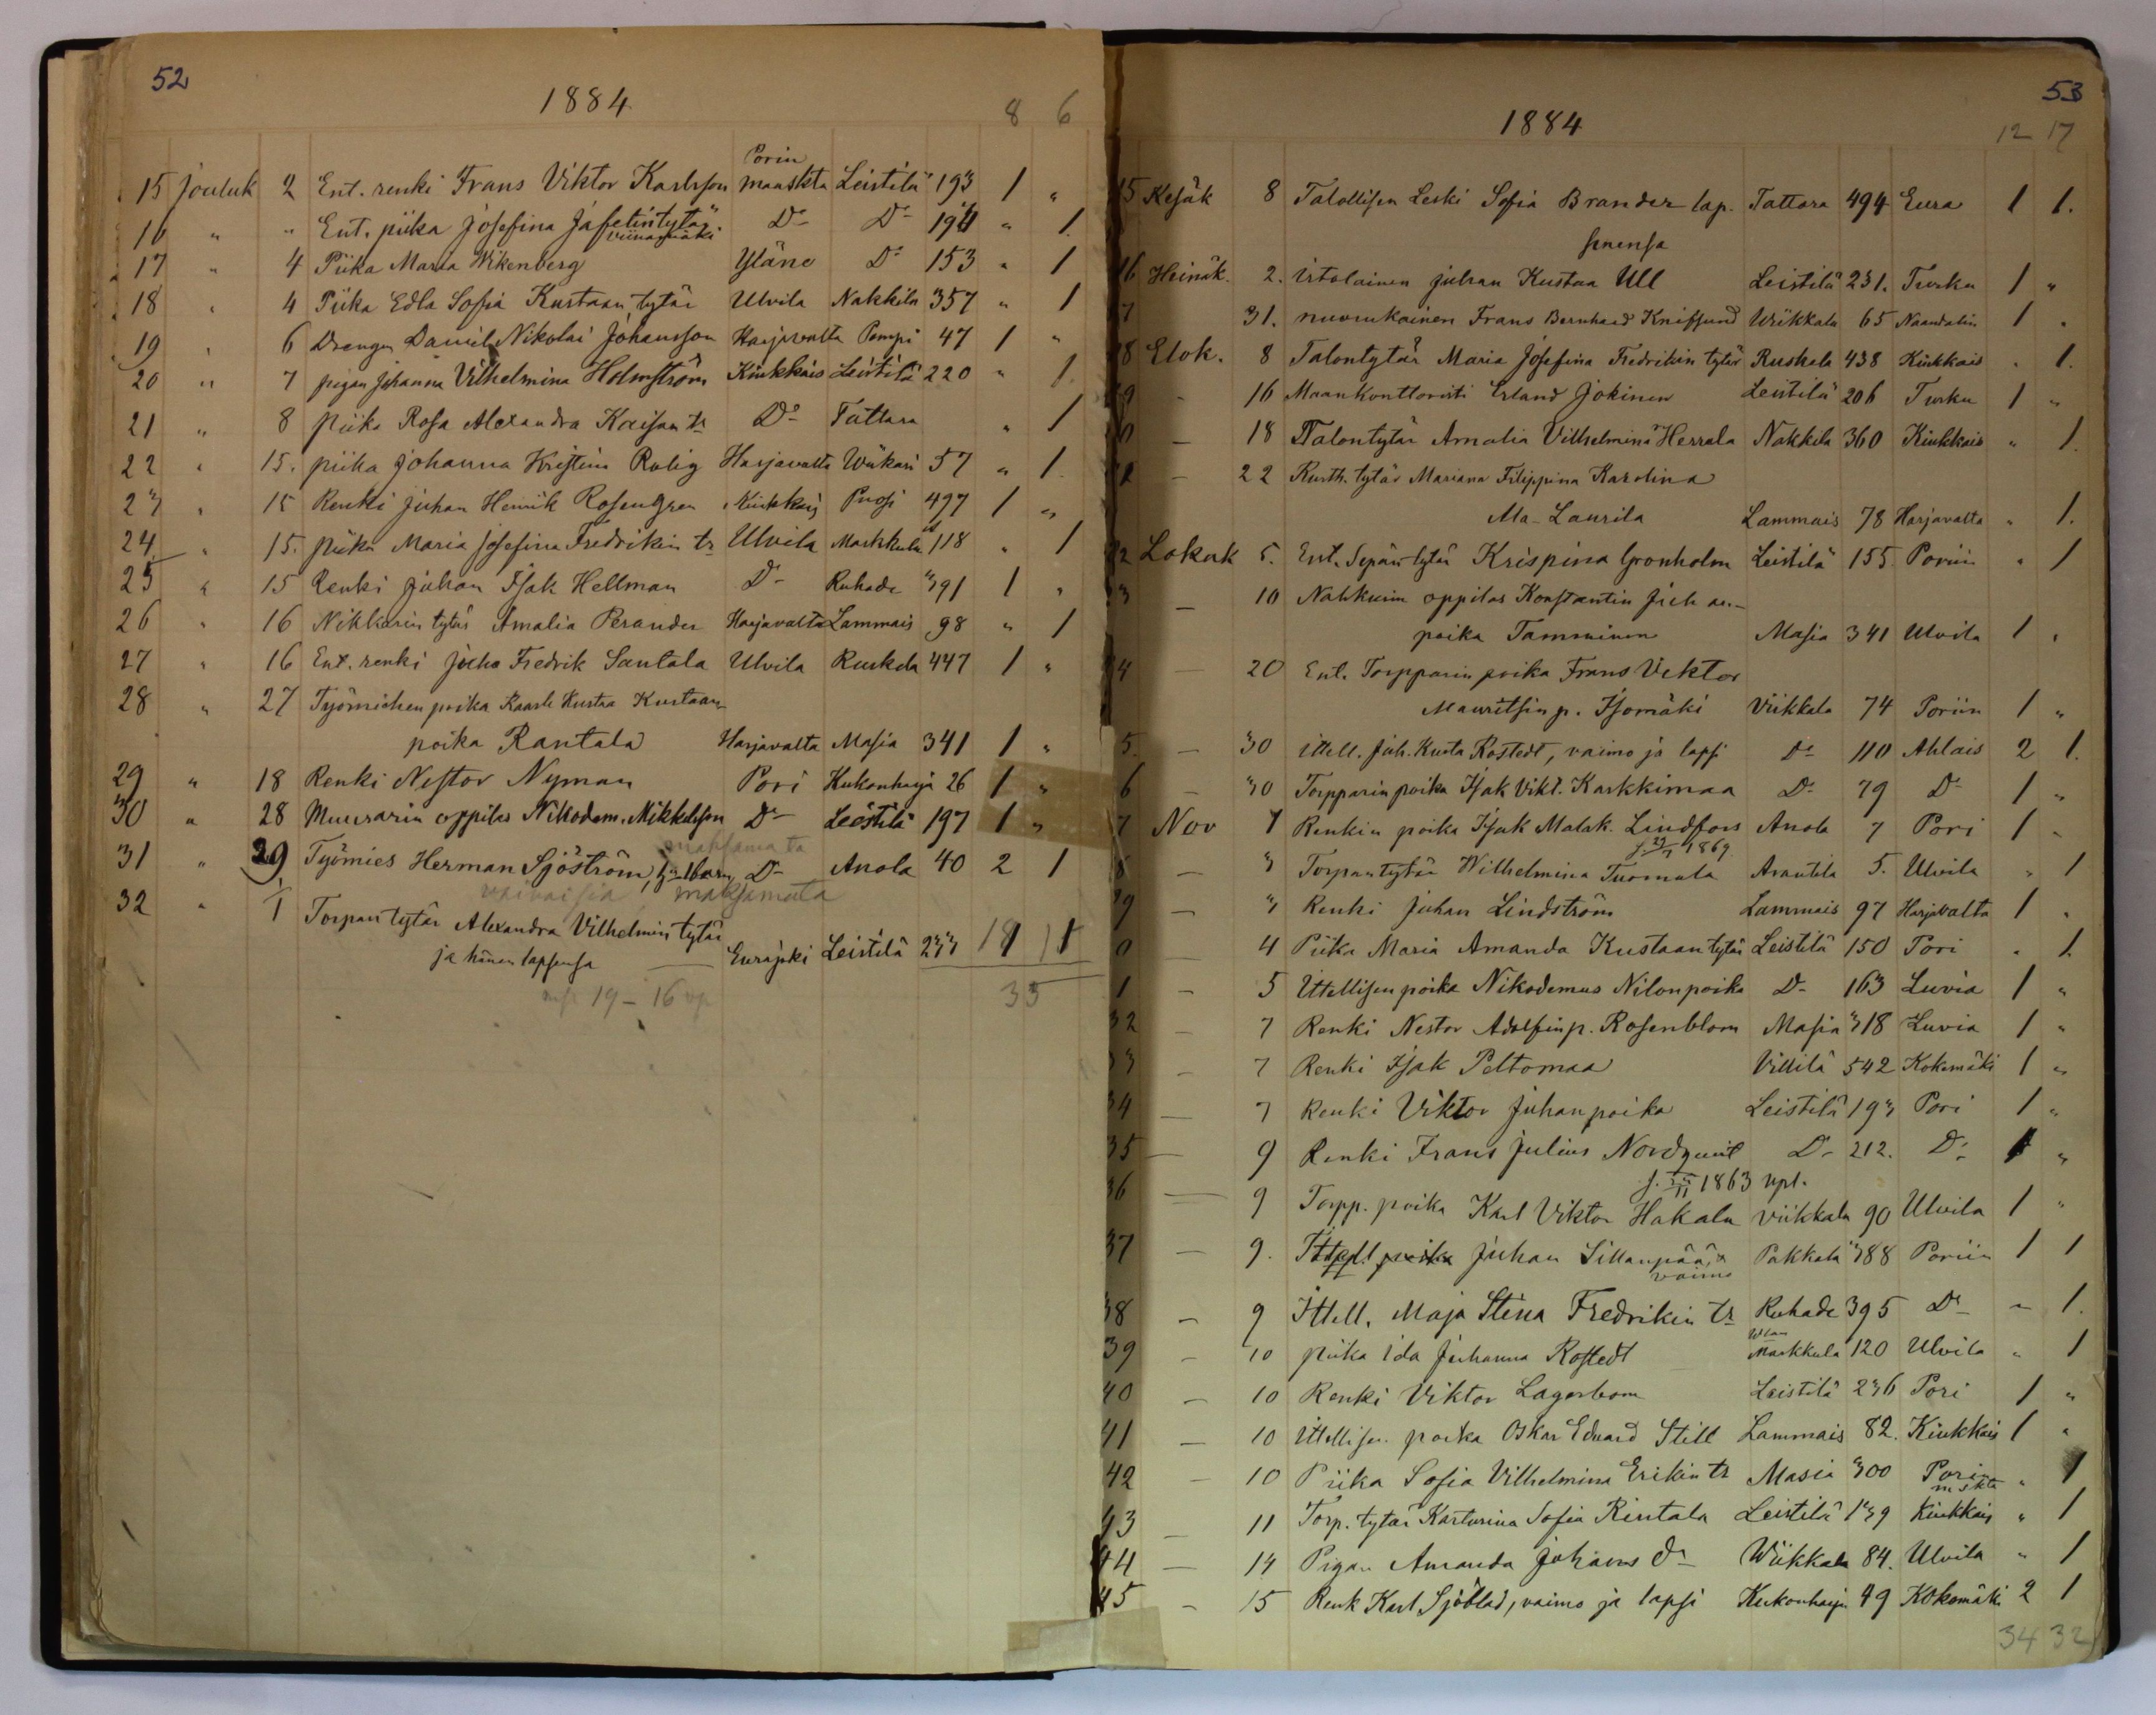 52
1884
8 6
Porin
15 Jouluk 2 Ent. renki Frans Viktor Karlsson maaskta Leistilä 193 1 "
16 " " Ent. piika Josefina Jafetintytär Do Do 194 " 1
viinamäki
17 " 4 Piika Maria Wikenberg Yläne Do 153 " 1
18 " 4 Piika Edla Sofia Kustaan tytär Ulvila Nakkila 357 " 1
19 " 6 Drengen Daniel Nikolai Johansson Harjavalta Pompi 47 1 "
20 " 7 pigan Johanna Vilhelmina Holmström Kiukkais Leistilä 220 " 1
21 " 8 piika Rosa Alexandra Kaisan tr Do Tattara " 1
22 " 15. piika Johanna Kristina Rolig Harjavalta Wiikari 57 " 1
23 " 15 Renki Juhan Henrik Rosengren Kiukkais Puosi 497 1 "
24 " 15. piika Maria Josefina Fredrikin tr Ulvila Markkula 118 " 1
25 " 15 Renki Juhan Isak Hellman Do Ruhade 391 1 "
26 " 16 Nikkarin tytär Amalia Perander Harjavalta Lammais 98 " 1
27 " 16 Ent. renki Juha Fredrik Santala Ulvila Ruskela 447 1 "
28 " 27 Työmiehen poika Kaarle Kustaa Kustaan
poika Rantala Harjavalta Masia 341 1 "
29 " 18 Renki Nestor Nyman Pori Kukonharja 26 1 "
30 " 28 Muurarin oppilas Nikodem. Mikkelsson Do Leistilä 197 1 "
maksamata
31 " 29 Työmies Herman Sjöström, Do Anola 40 2 1
vaivaisia maksamata
32 " 1 Torpan tytär Alexandra Vilhelmin tytär
ja hänen lapsensa Eurajoki Leistilä 233 19 1
19 – 16 vp 35
53
1884
12 17
15 Kesäk 8 Talollisen Leski Sofia Brander lap. Tattara 494 Eura 1 1.
senensa
16 Heinäk. 2. itsolainen Juhan Kustaa Ull Leistilä 231. Turku 1 "
7 31. nuorukainen Frans Bernhard Knifsund Wiikkala 65 Naandalin 1 "
18 Elok. 8 Talontytär Maria Josefina Fredrikin tytär Ruskela 438 Kiukkais " 1.
19 - 16 Maankonttoristi Erland Jokinen Leistilä 206 Turku 1 "
— 18 Talontytär Amalia Vilhelmina Herrala Nakkila 360 Kiukkais " 1.
— 22 Rusth. tytär Mariana Filippina Karolina
Ala-Laurila Lammais 78 Harjavalta " 1.
22 Lokak 5. Ent. Sepän tytär Krispina Gronholm Leistilä 155 Poriin " 1
3 — 10 Nahkurin oppilas Konstantin Juh an-
poika Tamminen Masia 341 Ulvila 1 "
4 — 20 Ent. Torpparin poika Frans Viktor
Mauritsin p. Isomäki Viikkala 74 Poriin 1 "
5. — 30 ittell. Juh. Kusta Rostedt, vaimo ja lapsi Do 110 Ahlais 2 1.
6 — 30 Torpparin poika Isak Vikt. Karkkimaa Do 79 Do 1 "
7 Nov 1 Renkin poika Isak Malak. Lindfors Anola 7 Pori 1 "
1869
8 — 3 Torpantytär Wilhelmina Tuomula Arantila 5. Ulvila " 1
9 — 3 Renki Juhan Lindström Lammais 97 Harjavalta 1 "
0 4 Piika Maria Amanda Kustaan tytär Leistilä 150 Pori " 1.
1 — 5 Ittellisen poika Nikodemus Nilonpoika Do 163 Luvia 1 "
32 — 7 Renki Nestor Adolfin p. Rosenblom Masia 318 Luvia 1 "
33 — 7 Renki Isak Peltomaa Villilä 542 Kokemäki 1 "
34 — 7 Renki Viktor Juhanpoika Leistilä 193 Pori 1 "
35 — 9 Renki Frans Julius Nordquist Do 212. Do 1 "
1863
36 — 9 Torpp. poika Karl Viktor Hakala Viikkala 90 Ulvila 1 "
37 — 9. Ittell. poika Juhan Sillanpää, & Pakkala 388 Poriin 1 1
vaimo
38 — 9 Ittell. Maja Stina Fredrikin tr Ruhade 395 Do " 1.
39 — 10 piika Ida Juhanna Rostedt Markkula 120 Ulvila " 1
40 — 10 Renki Viktor Lagerbom Leistilä 236 Pori 1 "
41 — 10 Ittellisen poika Oskar Eduard Still Lammais 82. Kiukkais 1 "
42 — 10 Piika Sofia Vilhelmina Erikin tr Masia 300 Porin " 1
mskta
43 — 11 Torp. tytär Karturina Sofia Rintala Leistilä 139 Kiukkais " 1
44 — 14 Pigan Amanda Johans dr Wiikkala 84. Ulvila " 1
45 — 15 Renk Karl Sjöblad, vaimo ja lapsi Kukonharja 49 Kokemäki 2 1
34 32